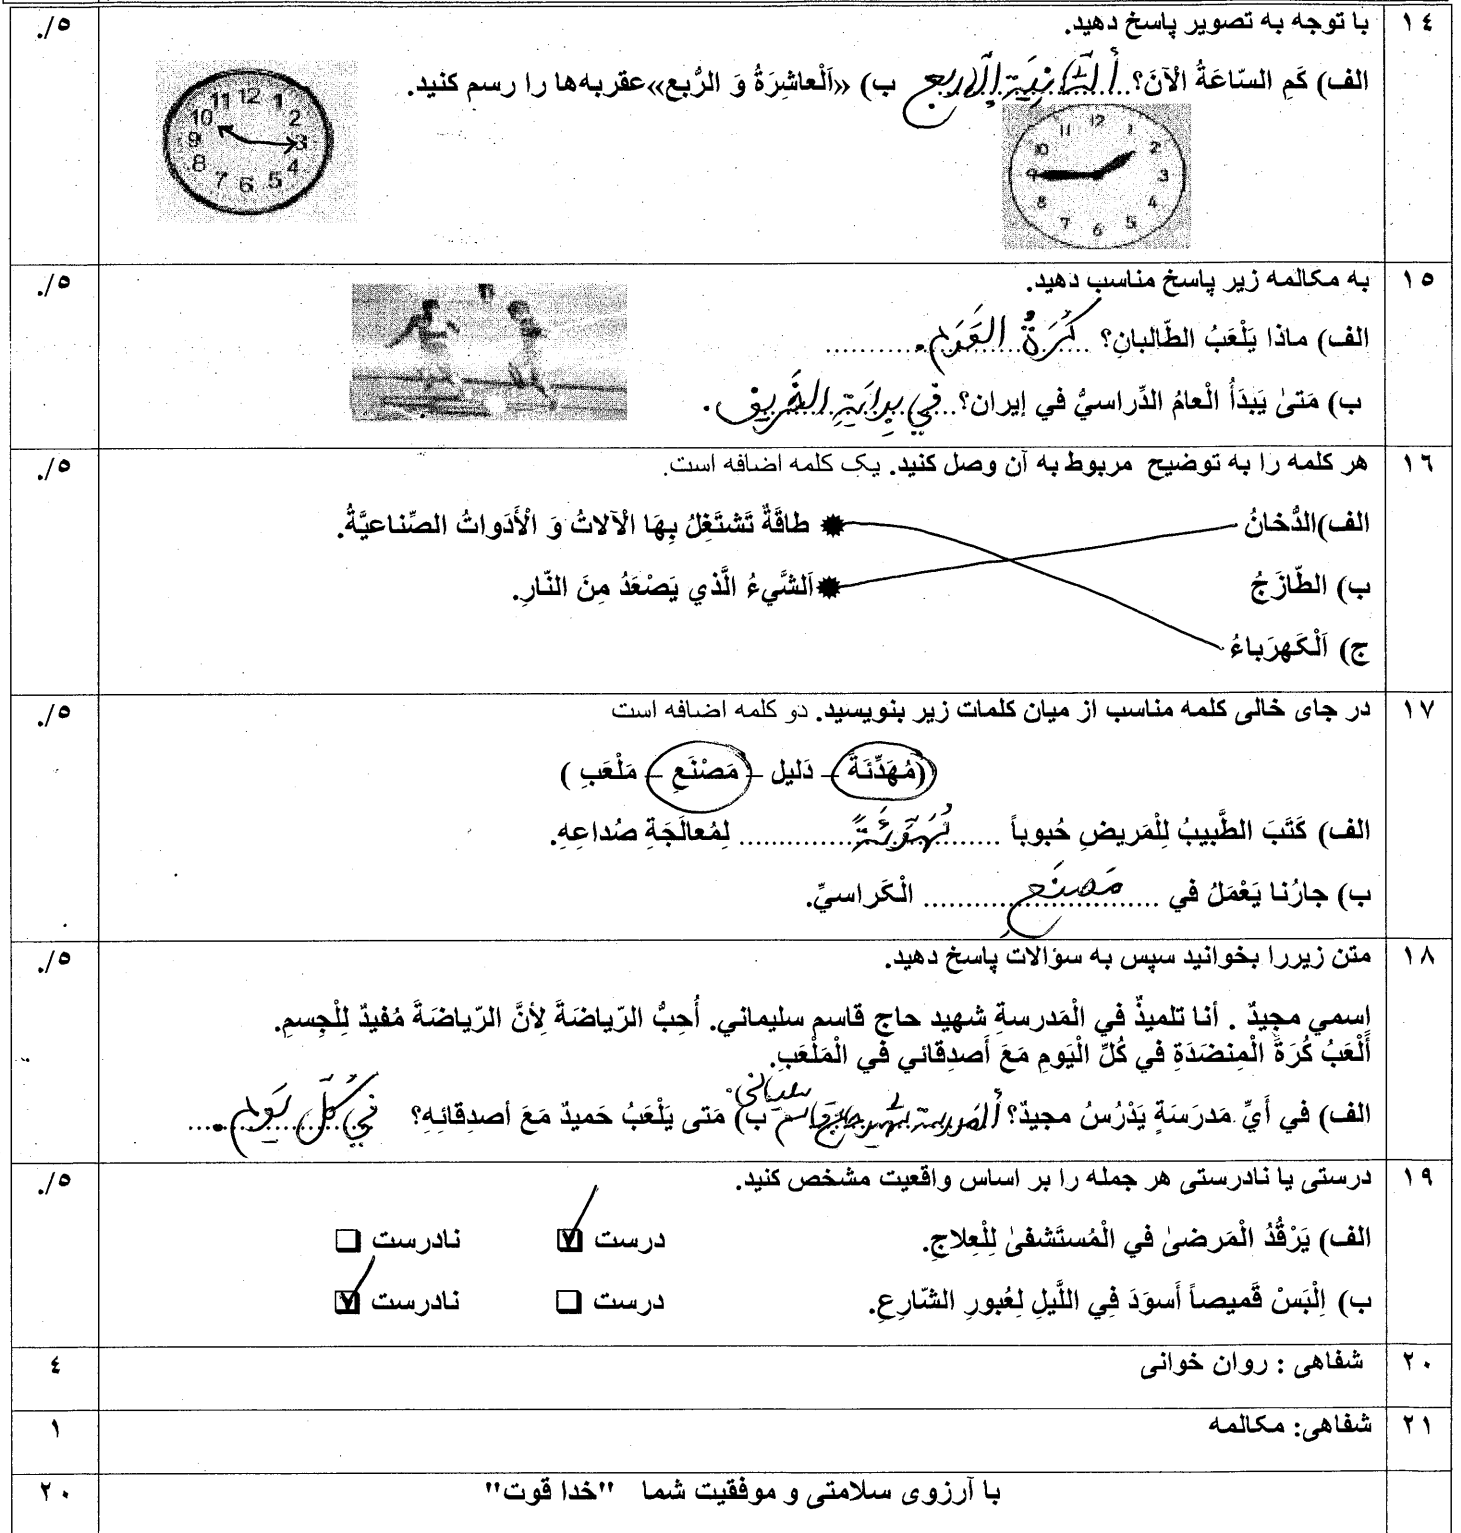 ١٤ با توجه به تصویر پاسخ دهید. ./٥
الف) كَمِ السّاعَةُ الْآنَ؟ أَلثّانِيَة إلّا ربع ب) «اَلْعاشِرَةُ وَ الرُّبع»عقربه‌ها را رسم کنید.
12 1 2 3 4 5 6 7 8 9 10 11
12 1 2 3 4 5 6 7 8 9 10 11
١٥ به مکالمه زیر پاسخ مناسب دهید. ./٥
الف) ماذا يَلْعَبُ الطّالبانِ؟ كُرَةُ القَدَمِ.
ب) مَتىٰ يَبدَأُ الْعامُ الدِّراسيُّ في إيران؟ في بِدايَةِ الخَريفِ.
١٦ هر کلمه را به توضیح مربوط به آن وصل کنید. یک کلمه اضافه است. ./٥
الف)الدُّخانُ طاقَةٌ تَشتَغِلُ بِهَا الْآلاتُ وَ الْأَدَواتُ الصِّناعيَّةُ.
ب) الطّازَجُ اَلشَّيءُ الَّذي يَصْعَدُ مِنَ النّارِ.
ج) اَلْكَهرَباءُ
١٧ در جای خالی کلمه مناسب از میان کلمات زیر بنویسید. دو کلمه اضافه است ./٥
((مُهَدِّئَةً – دَليل – مَصْنَعِ – مَلْعَبِ )
الف) كَتَبَ الطَّبيبُ لِلْمَريضِ حُبوباً مُهَدِّئَةً لِمُعالَجَةِ صُداعِهِ.
ب) جارُنا يَعْمَلُ في مَصنَعِ الْكَراسيِّ.
١٨ متن زیررا بخوانید سپس به سؤالات پاسخ دهید. ./٥
اِسمي مجيدٌ . أنا تلميذٌ في الْمَدرسةِ شهيد حاج قاسم سليماني. أُحِبُّ الرّياضَةَ لِأنَّ الرّياضَةَ مُفيدٌ لِلْجِسمِ.
أَلْعَبُ كُرَةَ الْمِنضَدَةِ في كُلِّ الْيَومِ مَعَ أَصدِقائي في الْمَلْعَبِ.
الف) في أَيِّ مَدرَسَةٍ يَدْرُسُ مجيدٌ؟ المدرسة شهيد حاج قاسم سليماني ب) مَتى يَلْعَبُ حَميدٌ مَعَ أصدِقائِهِ؟ في كُلِّ يَومٍ.
١٩ درستی یا نادرستی هر جمله را بر اساس واقعیت مشخص کنید. ./٥
الف) يَرْقُدُ الْمَرضىٰ في الْمُستَشفىٰ لِلْعِلاجِ. درست نادرست
ب) اِلْبَسْ قَميصاً أَسوَدَ فِي اللَّيلِ لِعُبورِ الشّارِعِ. درست نادرست
٢٠ شفاهی : روان خوانی ٤
٢١ شفاهی: مکالمه ١
با آرزوی سلامتی و موفقیت شما "خدا قوت" ٢٠